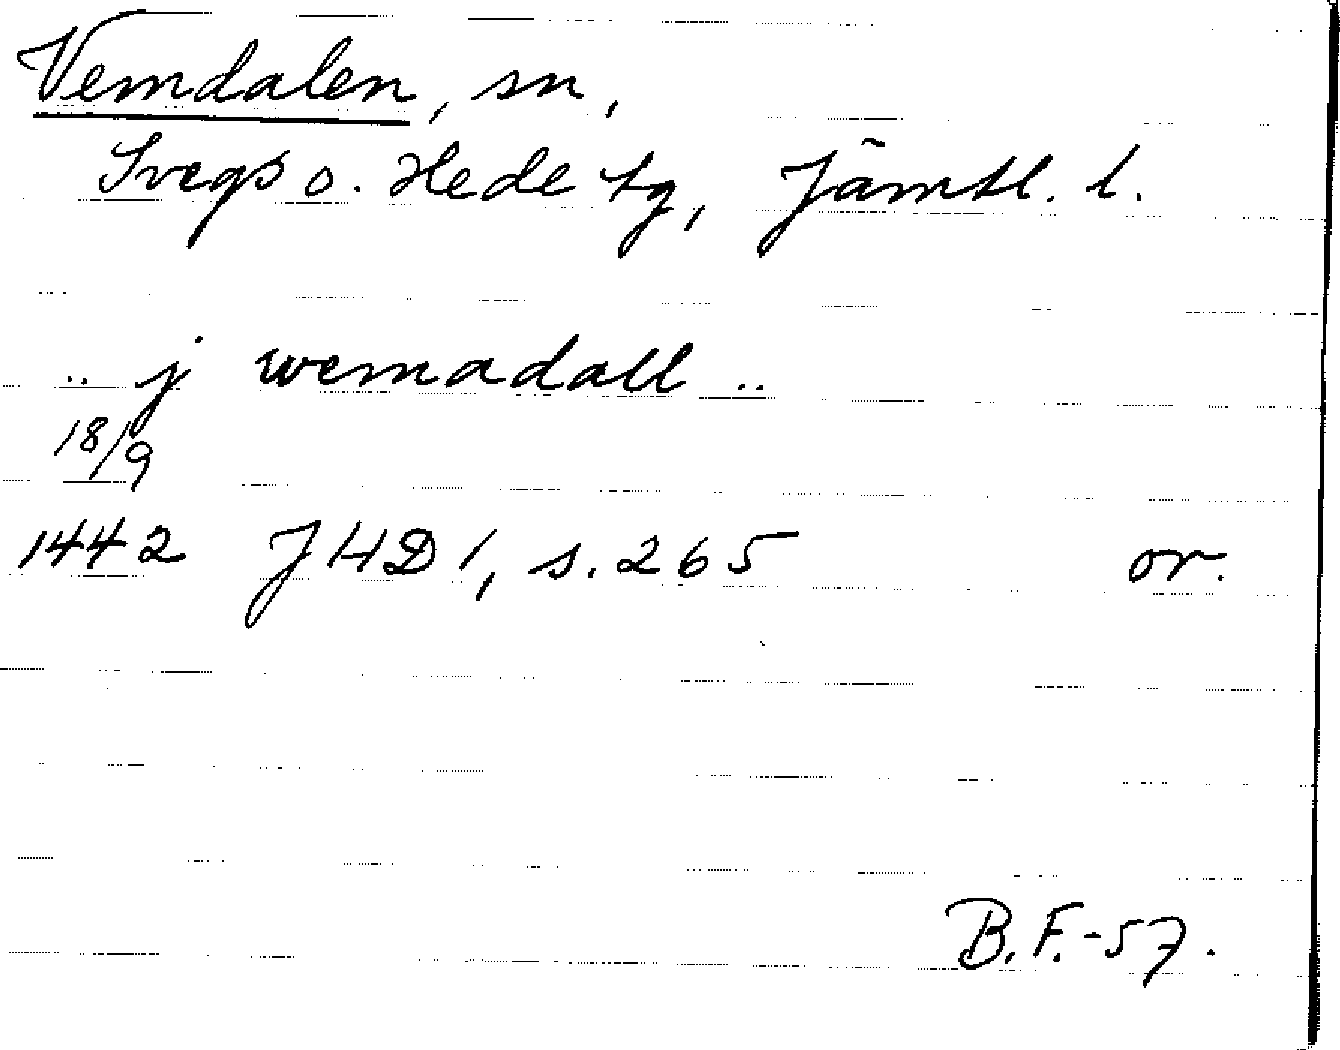 Vemdalen, sn,
Svegs o. Hede tg, Jämtl. l.
.. j wemadall ..
18/9
1442 JHD 1, s. 265 or.
B.F.-57.